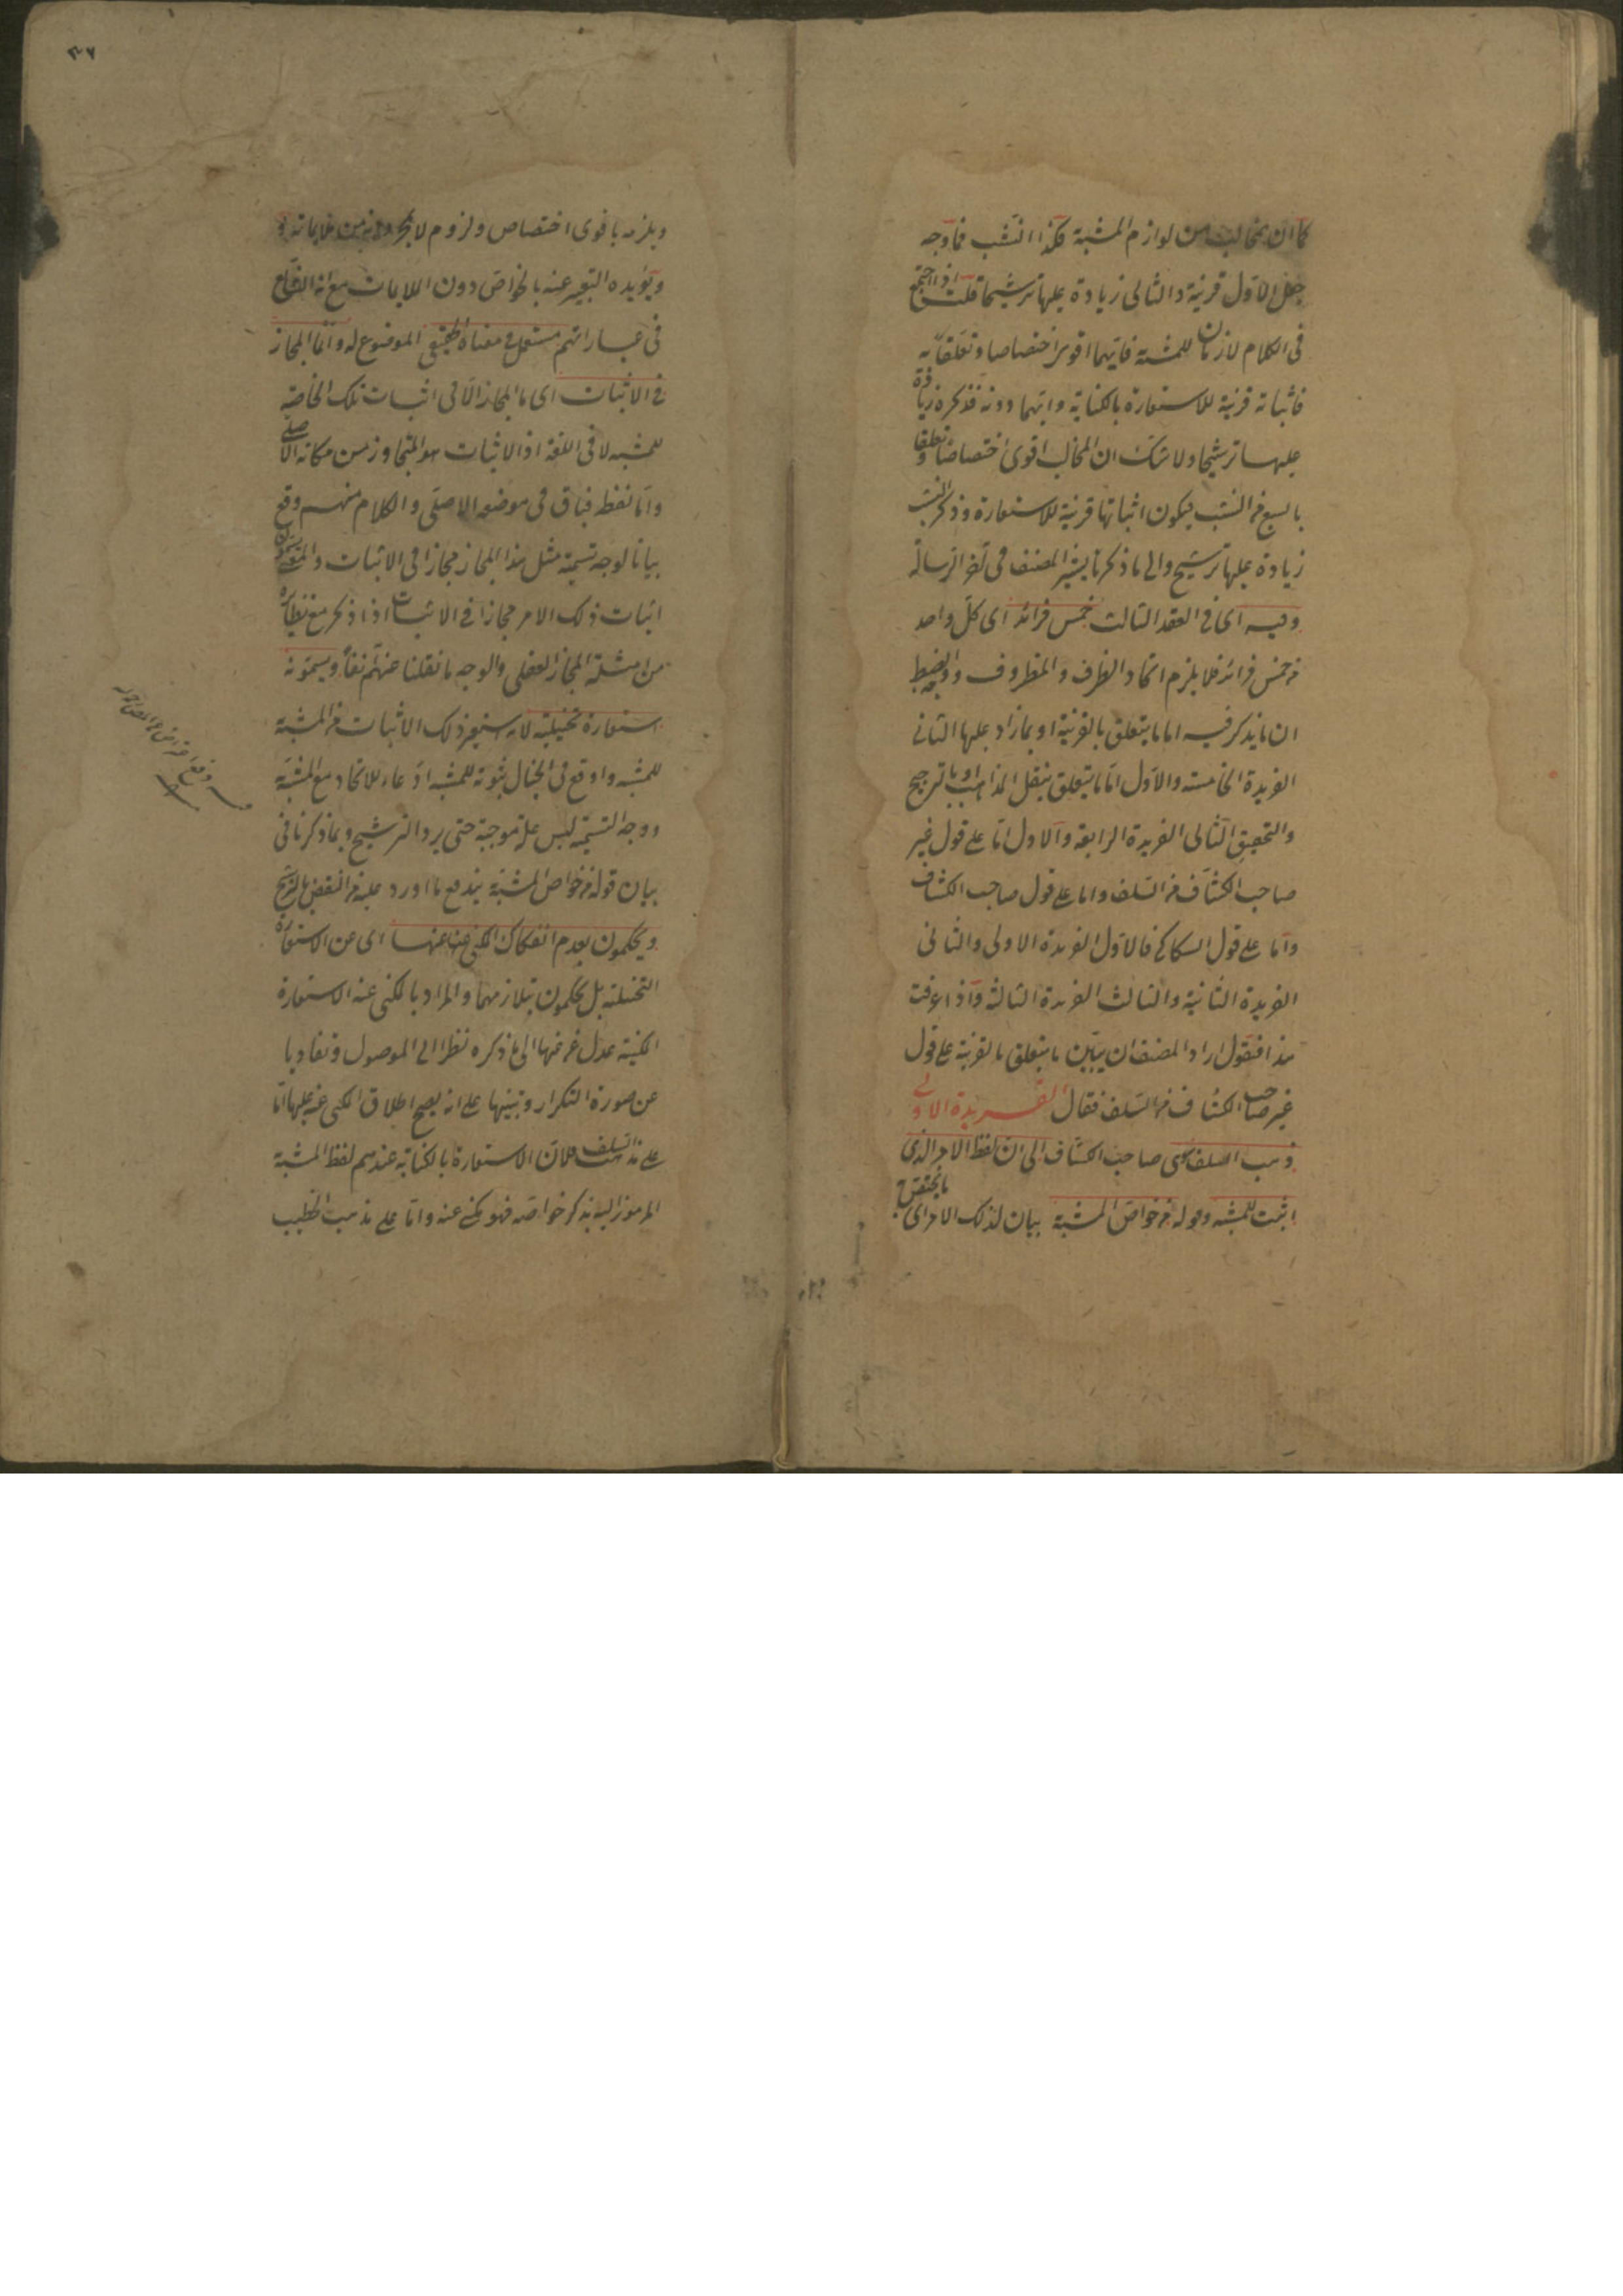 كما ان المخالب من لوازم المشبه به فكذا النشب فما وجه
جعل الاول قرينة والثاني زيادة عليها ترشيحا قلت اذا اجتمع
في الكلام لازمان للمشبه به فايهما اقوى اختصاصا وتعلقا به
فاثباته قرينة للاستعارة بالكناية وايهما دونه فذكره زيادة
عليها ترشيحا ولا شك ان المخالب اقوى اختصاصا وتعلقا
بالسبع من النشب فيكون اثباتها قرينة للاستعارة وذكر النشب
زيادة عليها ترشيح والى ما ذكرنا يشير المصنف في آخر الرسالة
وفيه اى في العقد الثالث خمس فرائد اى كل واحد
من خمس فرائد فلا يلزم اتحاد الظرف والمظروف ووجه الضبط
ان ما يذكر فيه اما ما يتعلق بالقرينة او بما زاد عليها الثاني
الفريدة الخامسة والاول اما ما يتعلق بنقل المذاهب او بالترجيح
والتحقيق الثاني الفريدة الرابعة والاول اما على قول غير
صاحب الكشاف من السلف واما على قول صاحب الكشاف
واما على قول السكاكي فالاول الفريدة الاولى والثاني
الفريدة الثانية والثالث الفريدة الثالثة واذا عرفت
هذا فنقول اراد المصنف ان يبين ما يتعلق بالقرينة على قول
غير صاحب الكشاف من السلف فقال الفريدة الاولى
ذهب السلف سوى صاحب الكشاف الى ان لفظ الامر الذى
اثبت للمشبه وقوله من خواص المشبه به بيان لذلك الامر اى ما يختص به
٣٦
ويلزمه باقوى اختصاص ولزوم لا مجرد من ملايماته
ويؤيده التعبير عنه بالخواص دون الملايمات مع انه الشايع
في عباراتهم مستعمل في معناه الحقيقي الموضوع له وانما المجاز
في الاثبات اى ما المجاز الا في اثبات تلك الخاصة
للمشبه لا في اللغة اذ الاثبات هو المتجاوز من مكانه الاصلي
واما لفظه فباق في موضعه الاصلي والكلام منهم وقع
بيانا لوجه تسمية مثل هذا المجاز مجازا في الاثبات يسمون
اثبات ذلك الامر مجازا في الاثبات اذا ذكر مع نظائره
من امثلة المجاز العقلي والوجه ما نقلنا عنهم آنفا ويسمونه
استعارة تخييلية لانه استعير ذلك الاثبات من المشبه به
للمشبه واوقع في الخيال ثبوته للمشبه ادعاء للاتحاد مع المشبه به
ووجه التسمية ليس علة موجبة حتى يرد الترشيح وبما ذكرنا في
بيان قوله من خواص المشبه به يندفع ما اورد عليه من النقض بالترشيح
ويحكمون بعدم انفكاك المكنى عنه عنها اى عن الاستعارة
التخييلية بل يحكمون بتلازمهما والمراد بالمكنى عنه الاستعارة
المكنية عدل عنها الى ما ذكره نظرا الى الموصول وتفاديا
عن صورة التكرار وتنبيها على انه يصح اطلاق المكنى عنه عليها اما
على مذهب السلف فلان الاستعارة بالكناية عندهم لفظ المشبه به
المرموز اليه بذكر خواصه فهو مكنى عنه واما على مذهب الخطيب